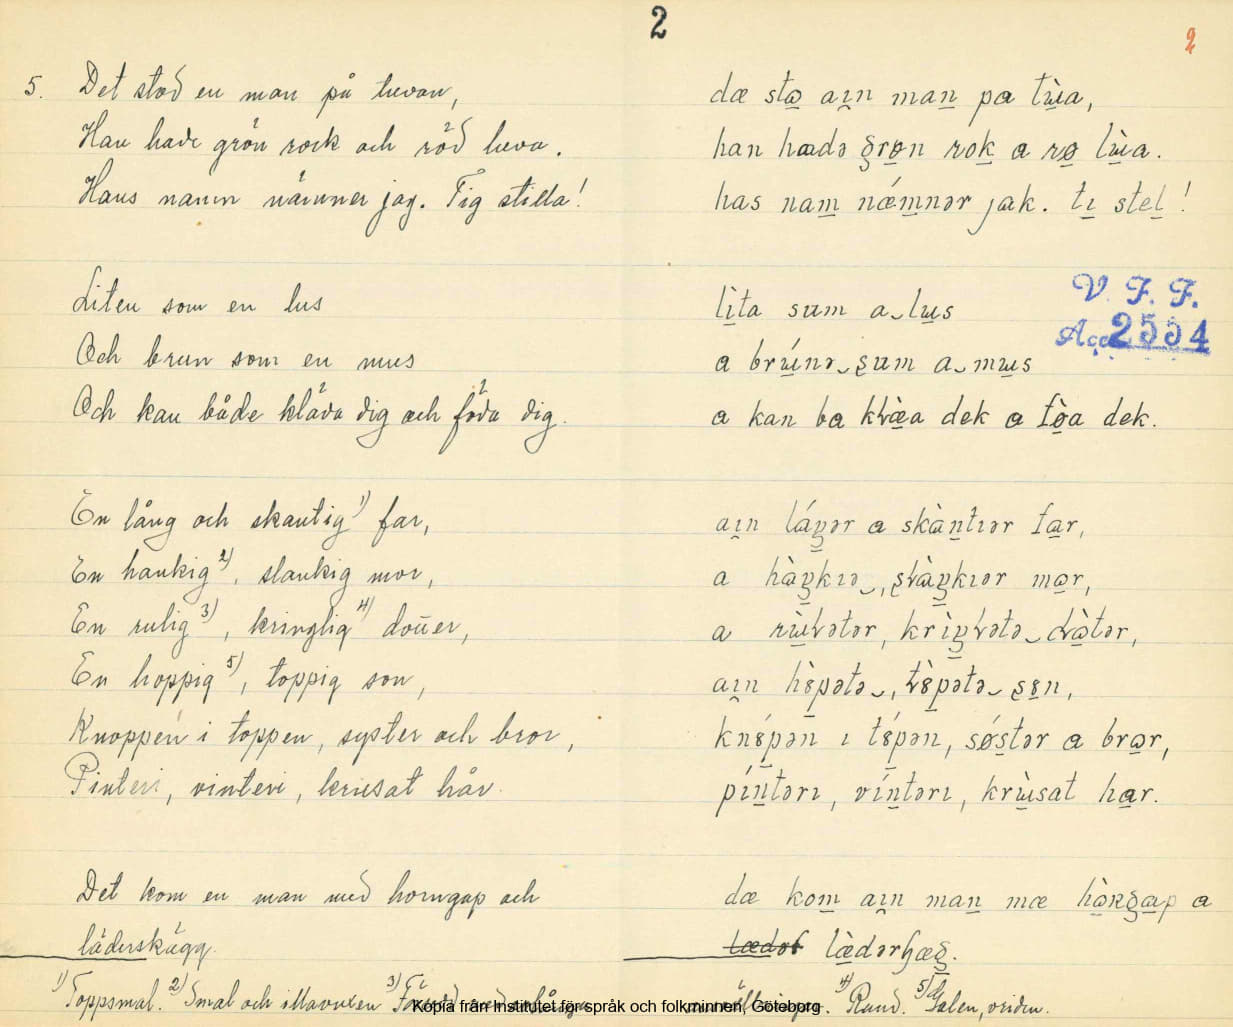 2
2
5. Det stod en man på tuvan,
Han hade grön rock och röd luva.
Hans namn nämner jag. Tig stilla!
Liten som en lus
Och brun som en mus
Och kan både kläda dig och föda dig.
En lång och skantig¹⁾ far,
En hankig²⁾, slankig mor,
En rulig³⁾, kringlig⁴⁾ dotter,
En hoppig⁵⁾, toppig son,
Knoppen i toppen, syster och bror,
Pinteri, vinteri, krusat hår.
Det kom en man med horngap och
läderskägg.
¹⁾ Toppsmal. ²⁾ Smal och illavuxen ³⁾
dæ stɷ aı̯n man pa tɯ̀a,
han hadə grøn rok a rø lɯ̀a.
has nam nǽmnər jak. tı stel!
lìta sum a‿lɯs
a brɯ́nə‿sum a‿mɯs
a kan ba kɫæ̀a dek a fø̀a dek.
aı̯n láŋər a skàntıər far,
a hàŋkıə‿, sɫàŋkıər mɷr,
a rɯ̀ɫətər, krìŋɫətə‿dɷ̀tər,
aı̯n hɞ̀pətə‿, tɞ̀pətə‿sɞn,
knɞ́pən ı tɞ́pən, sǿstər a brɷr,
píntərı, víntərı, krɯ̀sat har.
dæ kɷm aı̯n man mæ hɷ̀ɳgap a
læ̀dərʃæg.
⁴⁾ Rund. ⁵⁾ Galen, vriden.
V. F. F.
Acc. 2554
Kopia från Institutet för språk och folkminnen, Göteborg